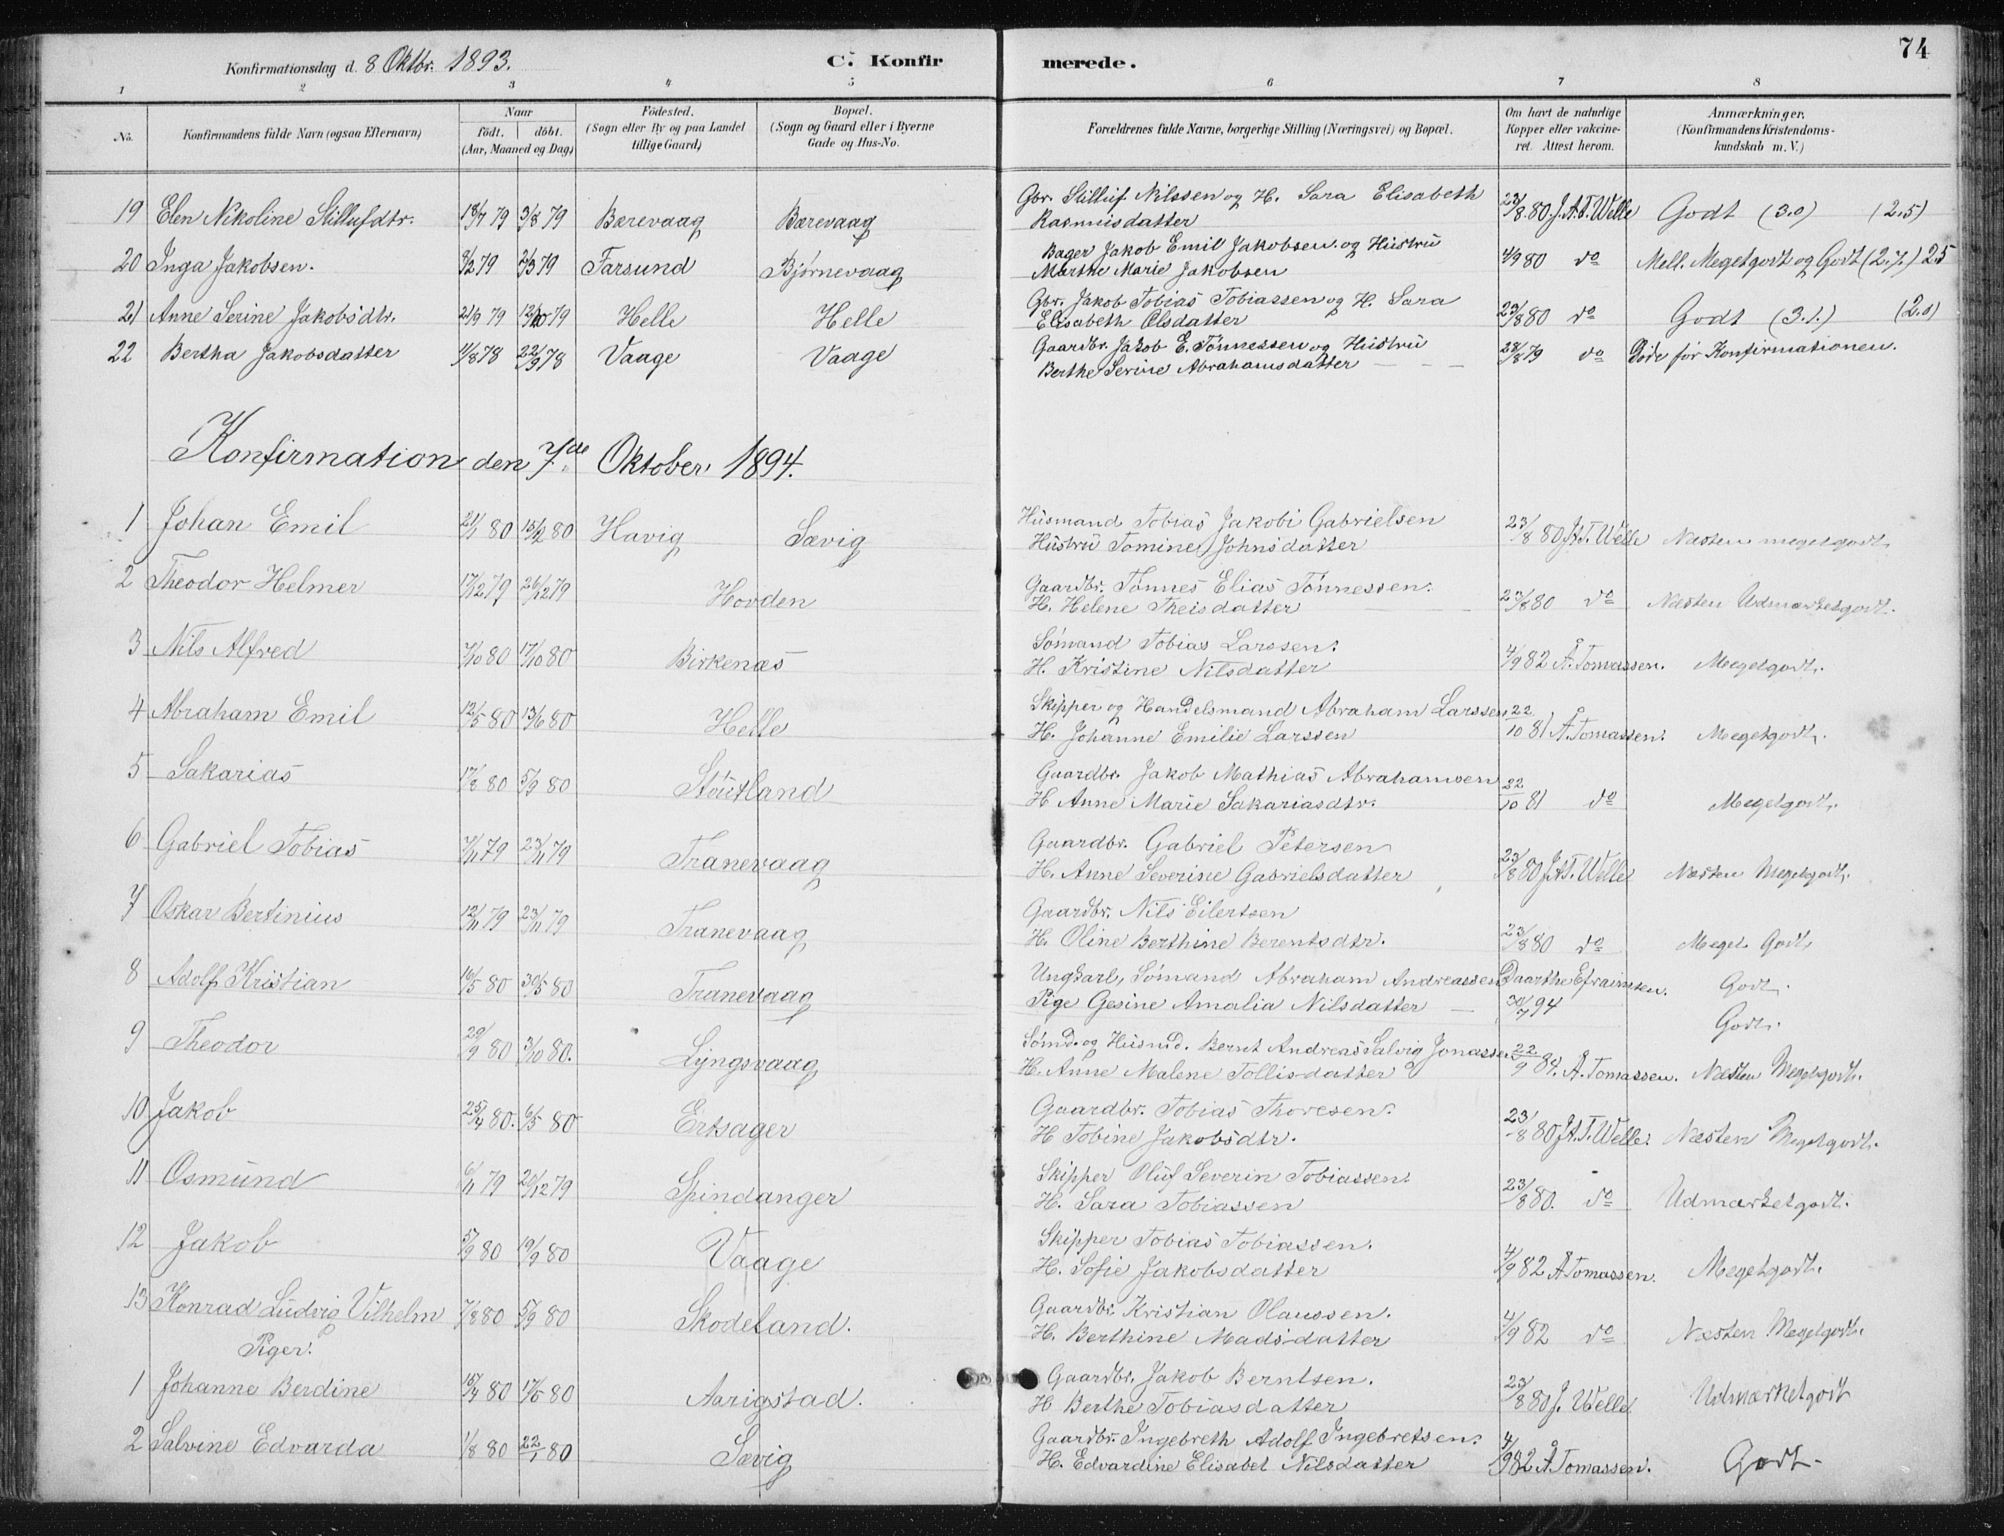 74
Konfirmationsdag d. 8 Oktbr. 1893. C. Konfirmerede.
1 2 3 4 5 6 7 8
No. Konfirmandens fulde Navn (ogsaa Efternavn) Naar født. døbt. (Aar, Maaned og Dag) Födested. (Sogn eller By og paa Landet tillige Gaard) Bopæl. (Sogn og Gaard eller i Byerne Gade og Hus-No. Forældrenes fulde Navne, borgerlige Stilling (Næringsvei) og Bopæl. Om havt de naturlige Kopper eller vakcineret. Attest herom. Anmærkninger, (Konfirmandens Kristendomskundskab m. V.)
19 Elen Nikoline Stillufdtr. 13/7 79 3/8 79 Bærevaag Bærevaag Gbr. Stilluf Nilssen og H. Sara Elisabeth Rasmusdatter 23/8 80 J.A.T. Welle Godt (3.0) (2.5)
20 Inga Jakobsen. 8/2 79 2/3 79 Farsund Bjørnevaag Bager Jakob Emil Jakobsen og Hustru Marthe Marie Jakobsen 4/9 80 do Mell. Megetgodt og Godt (2.7.) 2.5
21 Anne Serine Jakobsdtr. 21/9 79 12/10 79 Helle Helle Gbr. Jakob Tobias Tobiassen og H. Sara Elisabeth Olsdatter 23/8 80 do Godt (3.1.) (2.0)
22 Bertha Jakobsdatter 11/8 78 22/9 78 Vaage Vaage Gaardbr. Jakob E. Tønnessen og Hustru Berthe Serine Abrahamsdatter 28/8 79 do Døde før Konfirmationen.
Konfirmation den 7de Oktober 1894.
1 Johan Emil 21/1 80 15/2 80 Havig Sævig Husmand Tobias Jakobi Gabrielsen Hustru Tomine Johnsdatter 23/8 80 J.A.T. Welle Næsten megetgodt.
2 Theodor Helmer 17/12 79 26/12 79 Hovden Gaardbr. Tønnes Elias Tønnessen. H. Helene Theisdatter 23/8 80 do Næsten Udmærketgodt.
3 Nils Alfred 7/10 80 17/10 80 Birkenæs Sømand Tobias Larssen. H. Kristine Nilsdatter 4/9 82 A. Tomassen. Megetgodt.
4 Abraham Emil 12/5 80 13/6 80 Helle Skipper og Handelsmand Abraham Larssen H. Johanne Emilie Larssen 22/10 81 A. Tomassen. Megetgodt.
5 Sakarias 17/8 80 5/9 80 Støutland Gaardbr. Jakob Mathias Abrahamsen H. Anne Marie Sakariasdtr. 22/10 81 do Megetgodt.
6 Gabriel Tobias 7/11 79 23/11 79 Tranevaag Gaardbr. Gabriel Petersen H. Anne Severine Gabrielsdatter 23/8 80 J.A.T. Welle Næsten Megetgodt.
7 Oskar Bertinius 12/11 79 23/11 79 Tranevaag Gaardbr. Nils Eilertsen H. Oline Berthine Berentsdtr. 23/8 80 do Meget Godt.
8 Adolf Kristian 10/5 80 30/5 80 Tranevaag Ungkarl, Sømand Abraham Andreassen Pige Gesine Amalia Nilsdatter Daarthe Efraimsen. 30/7 94 Godt. Godt.
9 Theodor 20/9 80 3/10 80. Lyngsvaag Sømd. og Husmd. Bernt Andreas Salvig Jonassen H. Anne Malene Tollisdatter 22/9 89. A. Tomassen. Næsten Megetgodt.
10 Jakob 25/4 80. 6/5 80 Ertsager Gaardbr. Tobias Thoresen. H Tobine Jakobsdtr. 23/8 80 J.A.T. Welle. Næsten Megetgodt.
11 Osmund 6/11 79 20/12 79 Spindanger Skipper Oluf Severin Tobiassen. H. Sara Tobiassen 23/8 80. do Udmærketgodt.
12 Jakob 5/9 80 19/9 80 Vaage Skipper Tobias Tobiassen. H. Sofie Jakobsdatter 4/9 82 A Tomassen. Megetgodt.
13 Konrad Ludvig Vilhelm 7/8 80 5/9 80 Skodeland. Gaardbr. Kristian Olaussen. H. Berthine Madsdatter 4/9 82 do Næsten Megetgodt.
Piger.
1 Johanne Berdine 15/4 80 17/5 80 Aarigstad. Gaardbr. Jakob Berntsen. H Berthe Tobiasdatter 23/8 80 J. Welle Udmærketgodt
2 Salvine Edvarda 1/8 80 22/1 80 Sævig Gaardbr. Ingebreth Adolf Ingebretsen. H. Edvardine Elisabet Nilsdatter 4/9 82 A Tomassen. Godt.